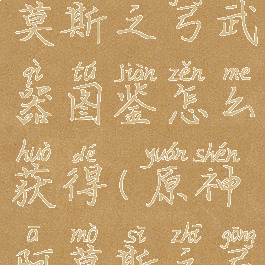 莫斯之弓武
qì tú jiàn zěn me
器图鉴怎么
huò dé yuán shén
获得(原神
ā mò sī zhī gōng
阿莫斯之弓